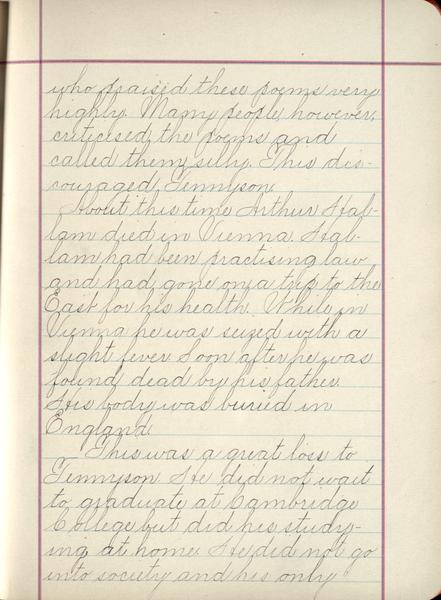 who praised these poems very
highly. Many people however,
criticised the poems and
called them silly. This dis-
couraged Tennyson.
About this time Arthur Hal-
lam died in Vienna. Hal-
lam had been practising law
and had gone on a trip to the
East for his health. While in
Vienna he was seized with a
slight fever. Soon after he was
found dead by his father.
His body was buried in
England.
This was a great loss to
Tennyson. He did not wait
to graduate at Cambridge
College but did his study-
ing at home. He did not go
into society and his only